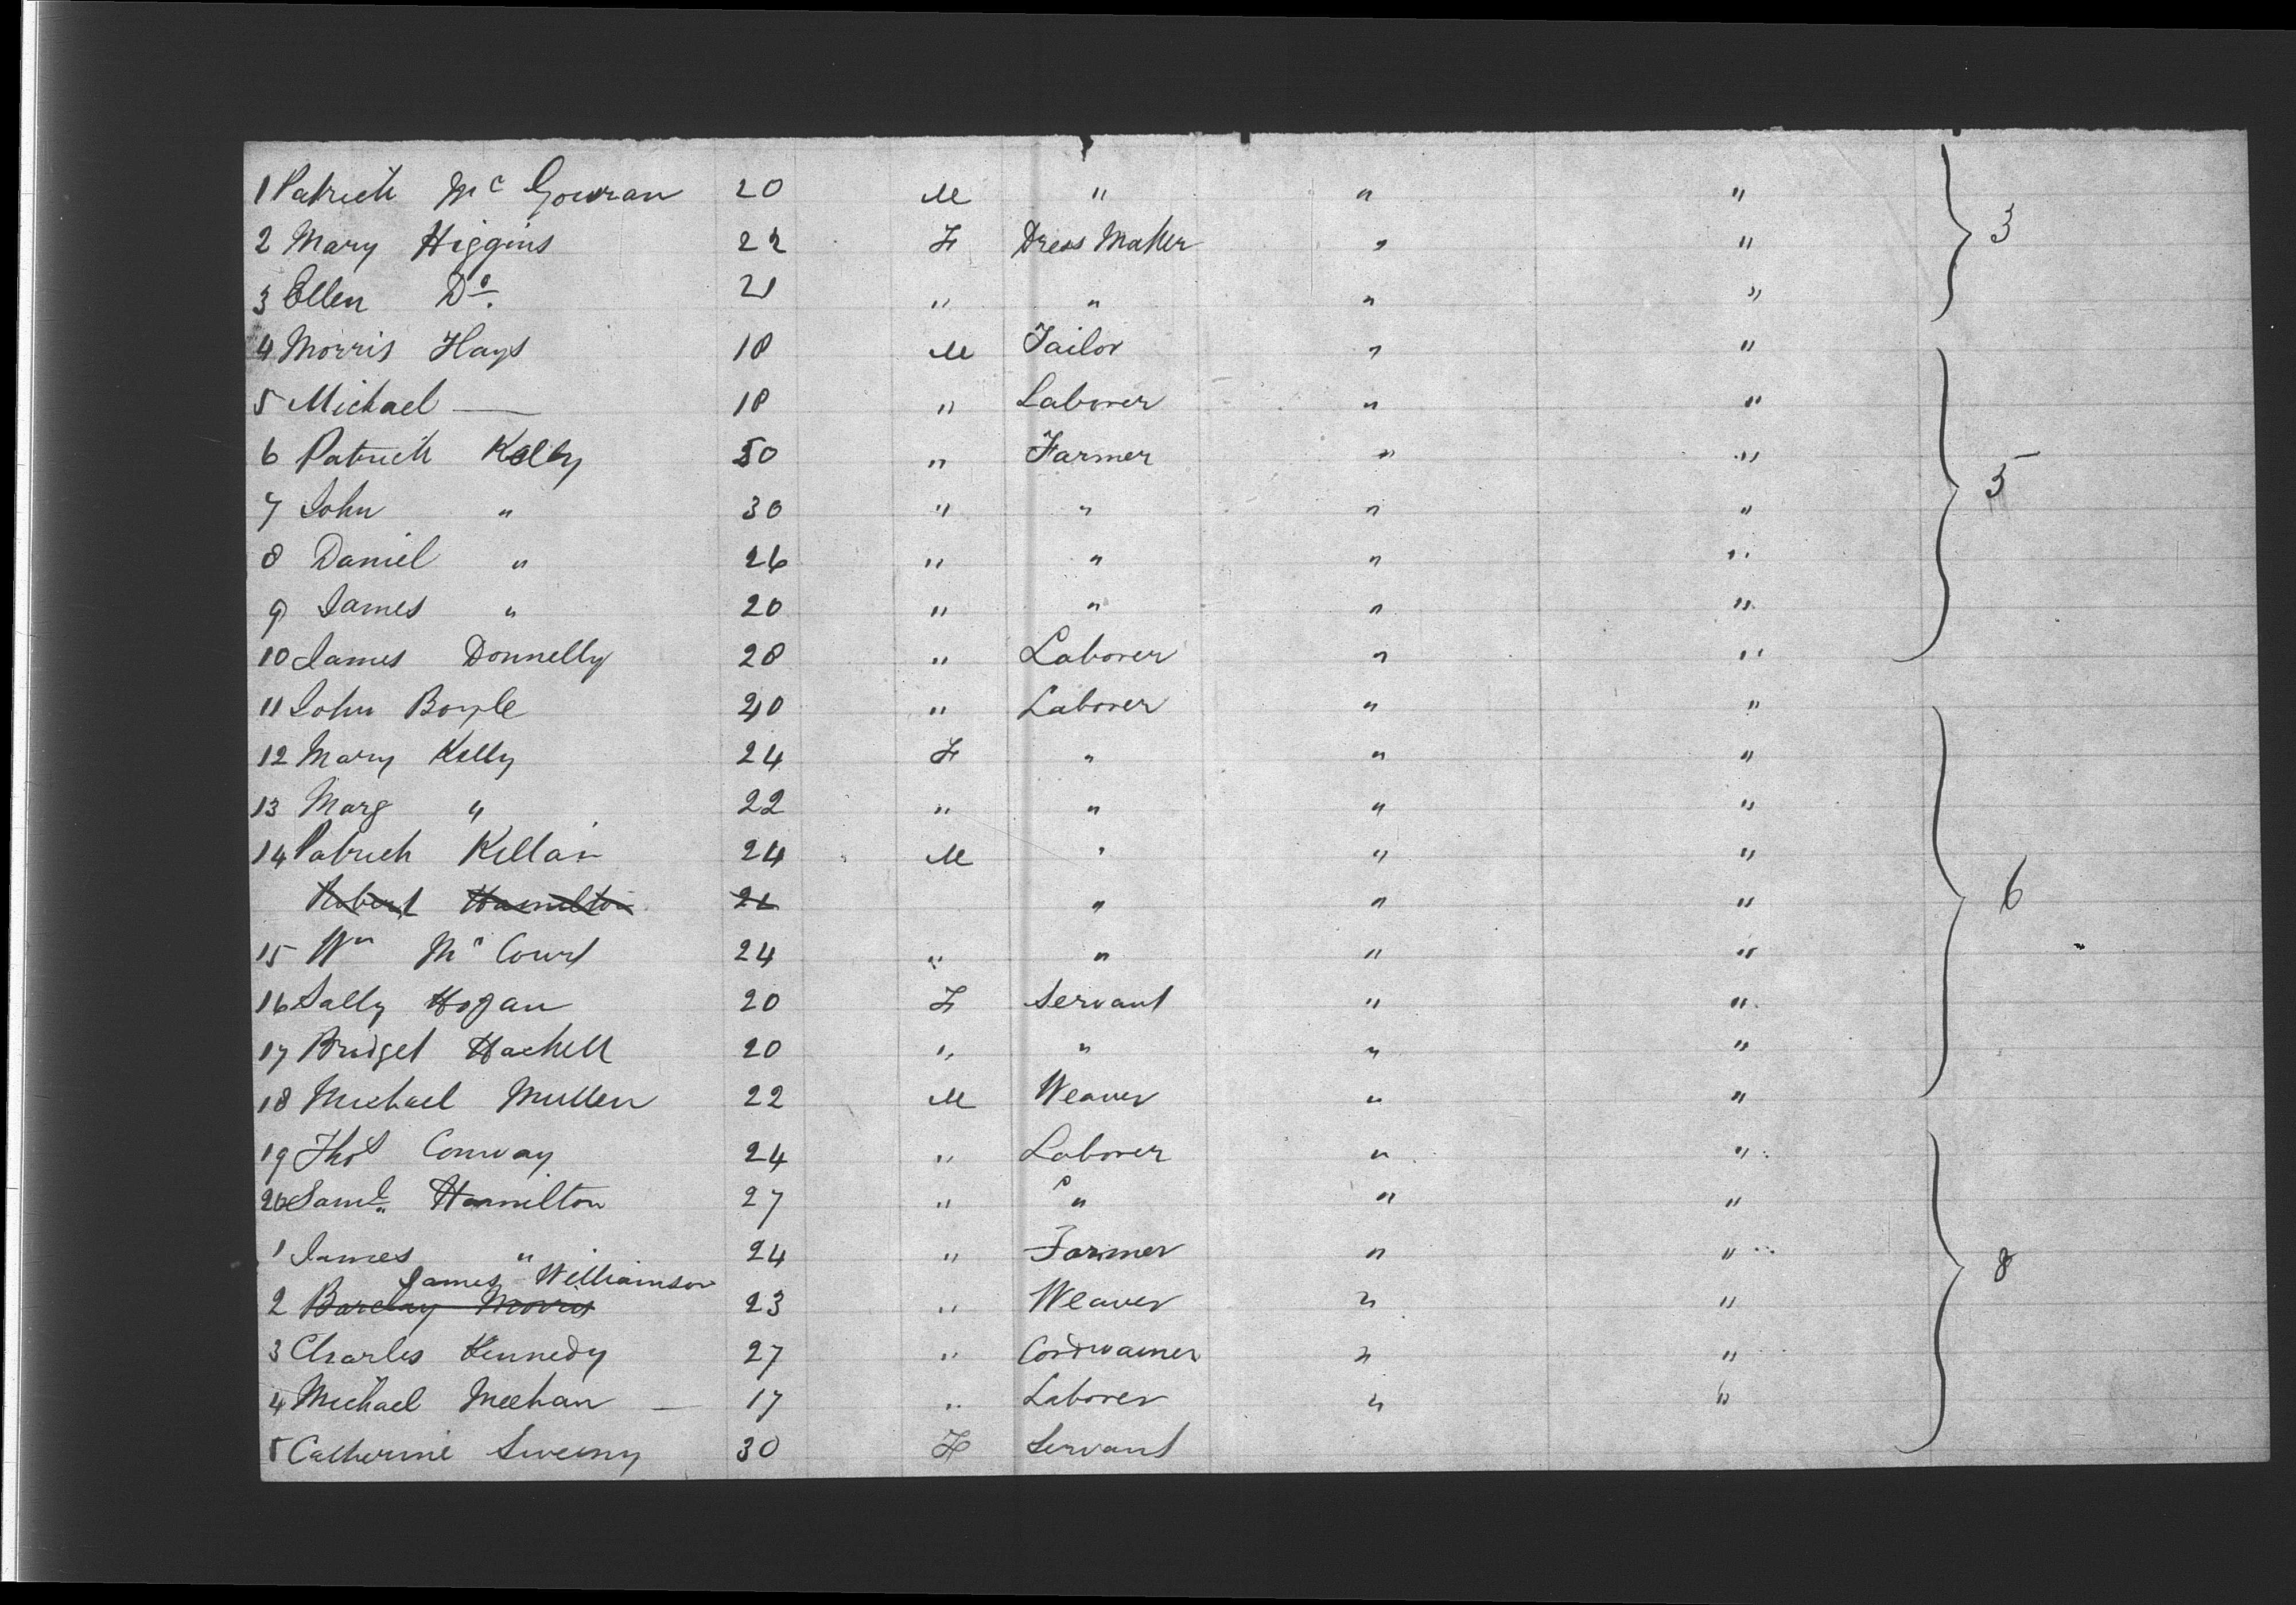 1 Patrick Mc Gouran 20 M " " "
2 Mary Higgins 22 F Dress Maker " " 3
3 Ellen Do. 21 " " " "
4 Morris Hays 18 M Tailor " "
5 Michael — 18 " Laborer " "
6 Patrick Kelly 50 " Farmer " " 5
7 John " 30 " " " "
8 Daniel " 26 " " " "
9 James " 20 " " " "
10 James Donnelly 28 " Laborer " "
11 John Boyle 20 " Laborer " "
12 Mary Kelly 24 F " " "
13 Marg " 22 " " " "
14 Patrick Killan 24 M " " "
Robert Hamilton " " " 6
15 Wm Mc Court 24 " " " "
16 Sally Hogan 20 F Servant " "
17 Bridget Hackett 20 " " " "
18 Michael Mullen 22 M Weaver " "
19 Thos Conway 24 " Laborer " "
20 Saml. Hamilton 27 " " " "
1 James " 24 " Farmer " " 8
James Williamson
2 Barclay Morris 23 " Weaver " "
3 Charles Kennedy 27 " Cordwainer " "
4 Michael Meehan — 17 " Laborer " "
5 Catherine Sweeny 30 F Servant